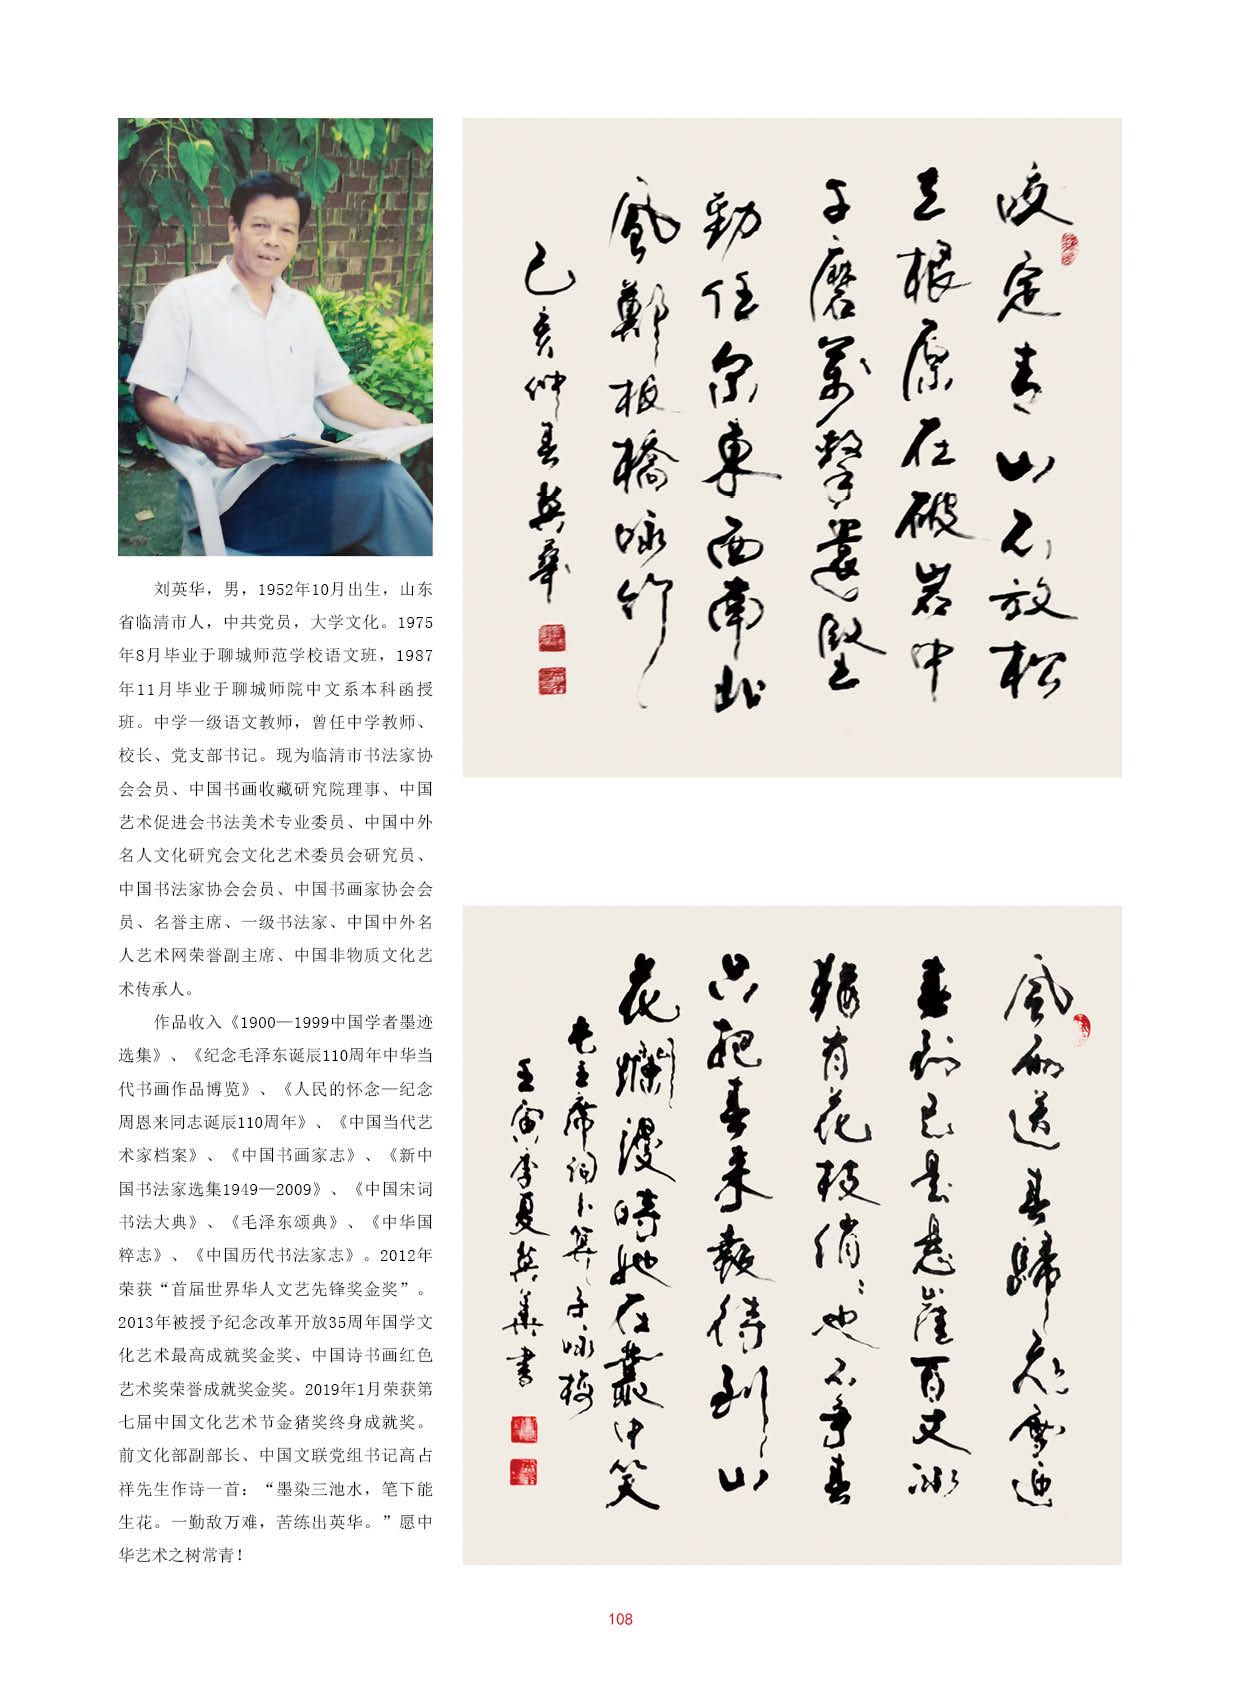 刘英华，男，1952年10月出生，山东
省临清市人，中共党员，大学文化。1975
年8月毕业于聊城师范学校语文班，1987
年11月毕业于聊城师院中文系本科函授
班。中学一级语文教师，曾任中学教师、
校长、党支部书记。现为临清市书法家协
会会员、中国书画收藏研究院理事、中国
艺术促进会书法美术专业委员、中国中外
名人文化研究会文化艺术委员会研究员、
中国书法家协会会员、中国书画家协会会
员、名誉主席、一级书法家、中国中外名
人艺术网荣誉副主席、中国非物质文化艺
术传承人。
作品收入《1900—1999中国学者墨迹
选集》、《纪念毛泽东诞辰110周年中华当
代书画作品博览》、《人民的怀念—纪念
周恩来同志诞辰110周年》、《中国当代艺
术家档案》、《中国书画家志》、《新中
国书法家选集1949—2009》、《中国宋词
书法大典》、《毛泽东颂典》、《中华国
粹志》、《中国历代书法家志》。2012年
荣获“首届世界华人文艺先锋奖金奖”。
2013年被授予纪念改革开放35周年国学文
化艺术最高成就奖金奖、中国诗书画红色
艺术奖荣誉成就奖金奖。2019年1月荣获第
七届中国文化艺术节金猪奖终身成就奖。
前文化部副部长、中国文联党组书记高占
祥先生作诗一首：“墨染三池水，笔下能
生花。一勤敌万难，苦练出英华。”愿中
华艺术之树常青！
咬定青山不放松
立根原在破岩中
千磨万击还坚
劲任尔东西南北
風鄭板橋咏竹
己亥仲春英華
風雨送春歸飛雪迎
春到已是悬崖百丈冰
犹有花枝俏俏也不争春
只把春来報待到山
花爛漫時她在叢中笑
毛主席词卜算子咏梅
壬寅季夏英華書
108